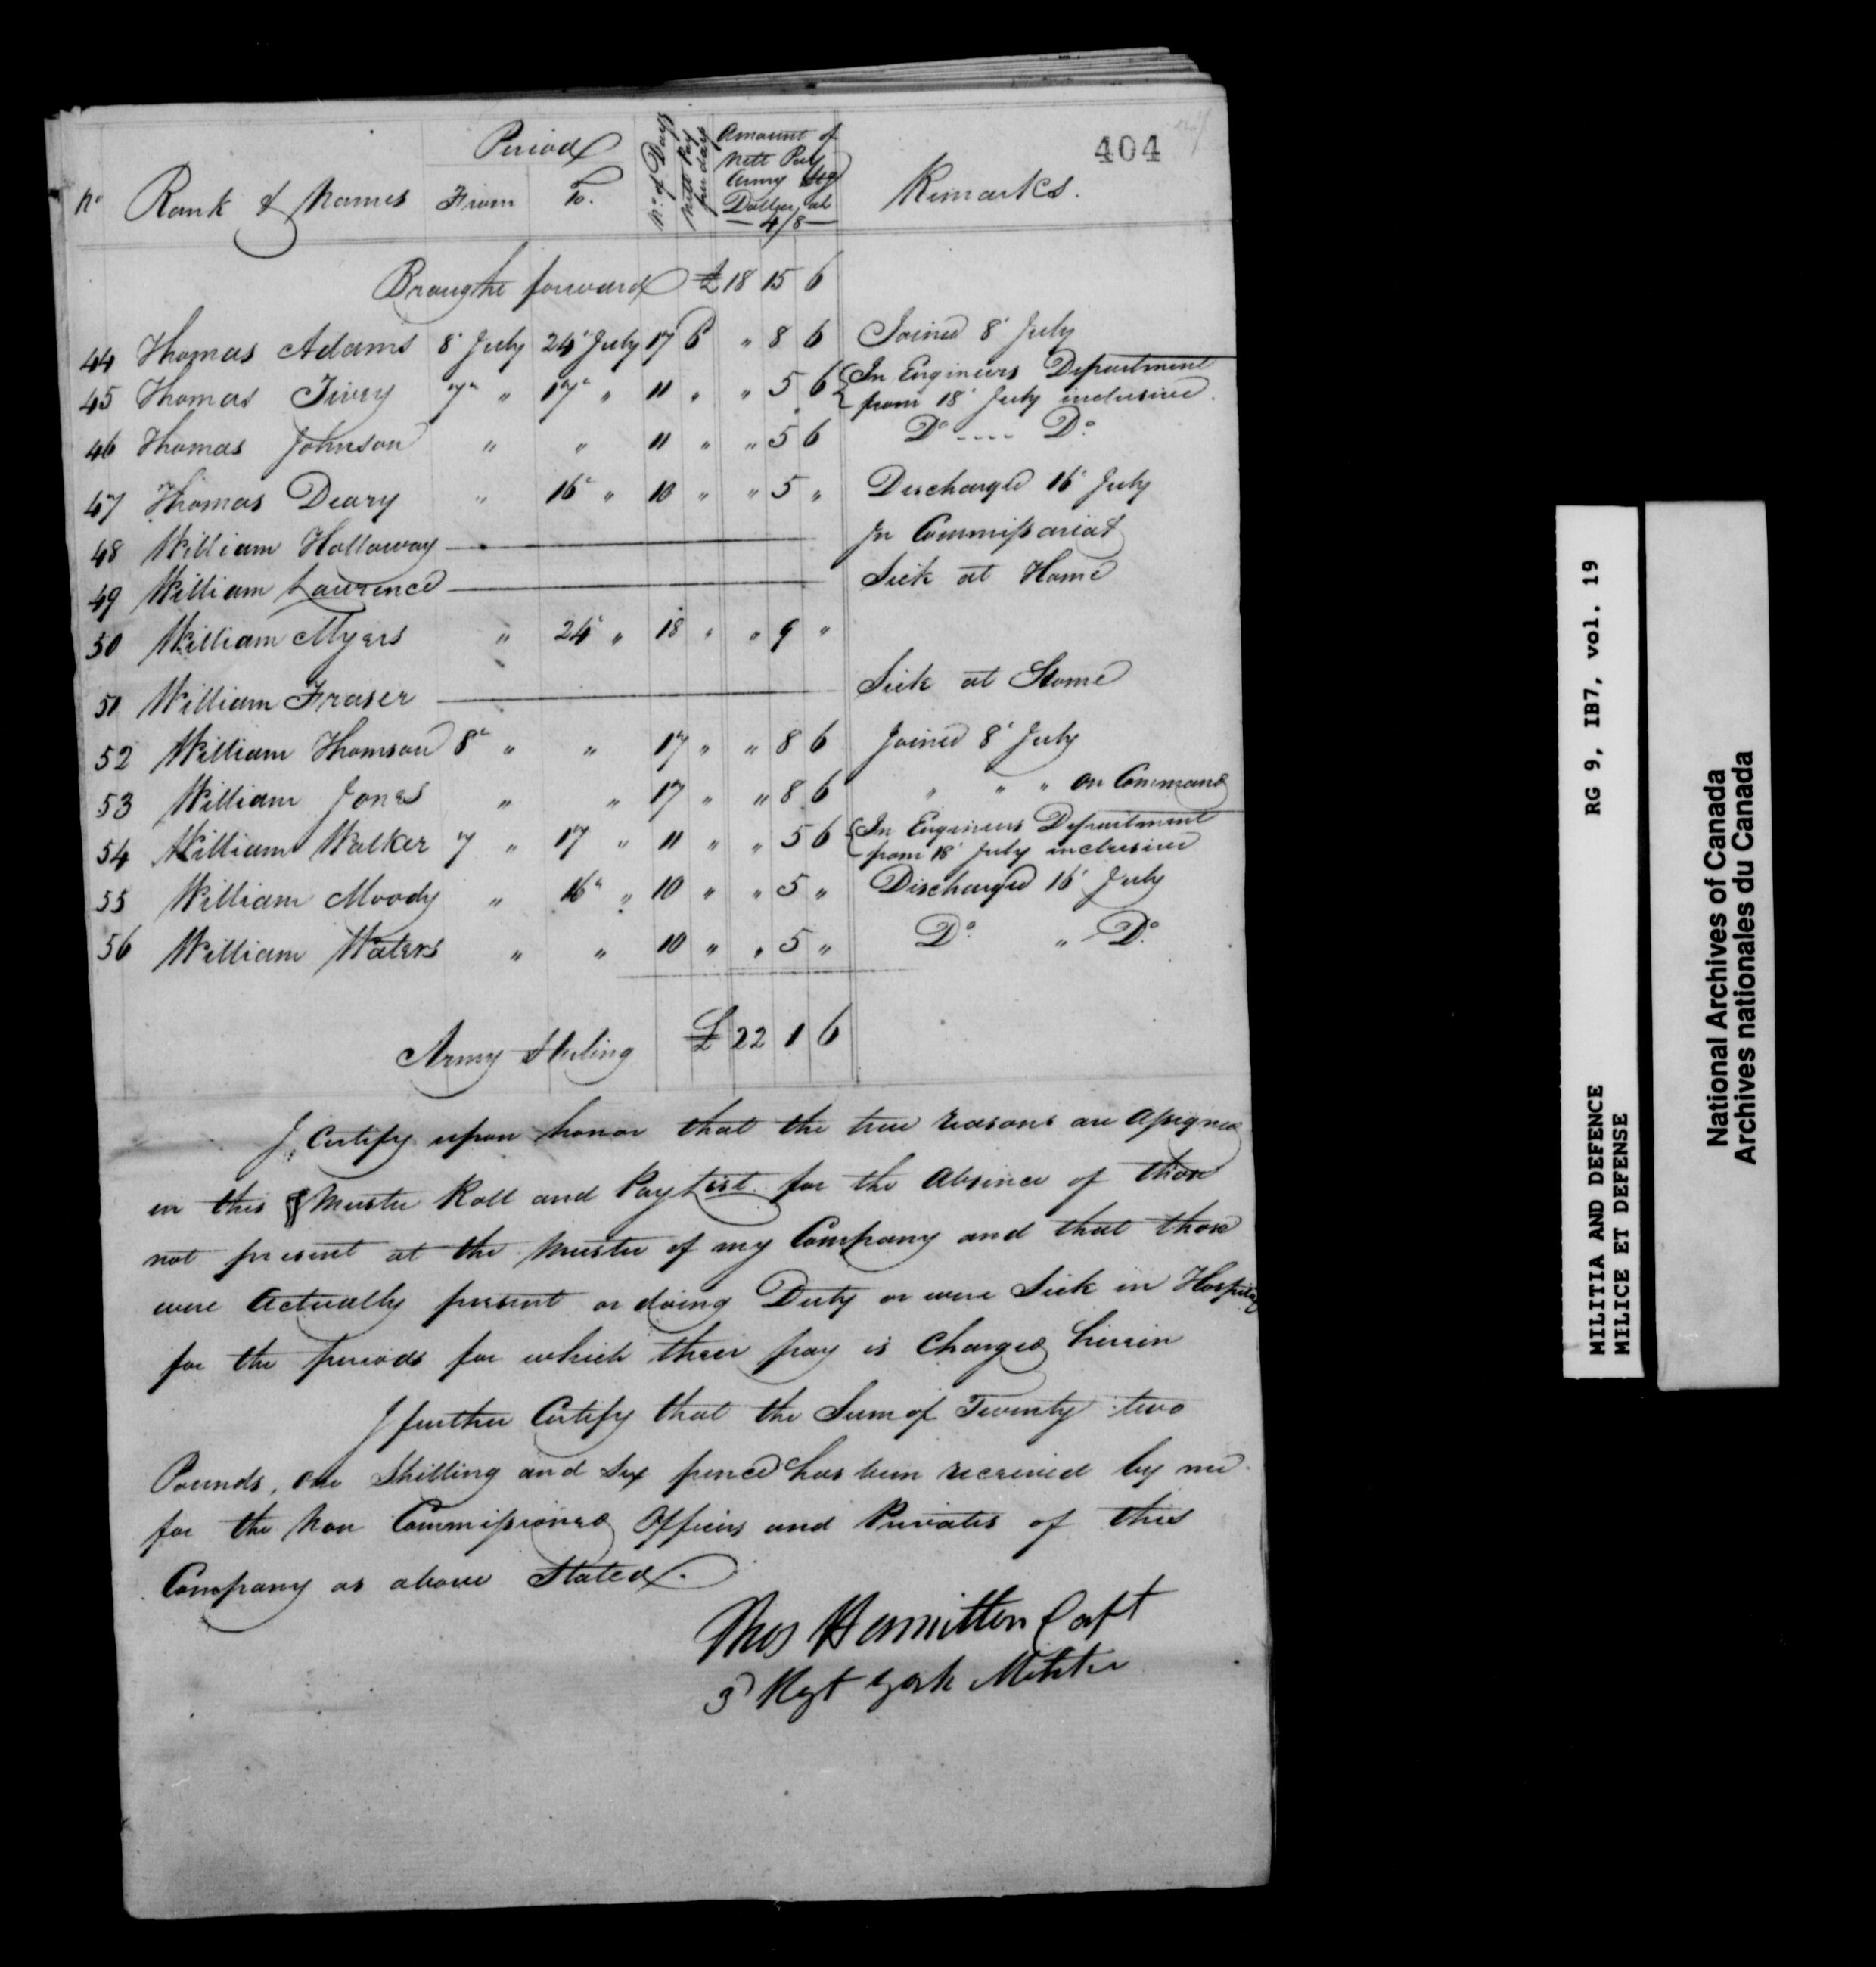 404
Nº Rank & Names Period From To. Nº of Days Nett Pay per day Amount of Nett Pay Army Stg Dollar at 4/8 Remarks.
Brought forward £ 18 15 6
44 Thomas Adams 8 July 24 July 17 6 " 8 6 Joined 8 July
45 Thomas Ivery 7 " 17 " 11 " " 5 6 { In Engineers Department
from 18 July inclusive.
46 Thomas Johnson " " 11 " " 5 6 Dº ---- Dº
47 Thomas Deary " 16 " 10 " " 5 " Discharged 16 July
48 William Holloway In Commissariat
49 William Lawrence Sick at Home
50 William Myers " 24 " 18 " " 9 "
51 William Fraser Sick at Home
52 William Thomson 8 " " 17 " " 8 6 Joined 8 July
53 William Jones " " 17 " " 8 6 " " " on Command
54 William Walker 7 " 17 " 11 " " 5 6 { In Engineers Department
from 18 July inclusive
55 William Moody " 16 " 10 " " 5 " Discharged 16 July
56 William Waters " " 10 " " 5 " Dº " Dº
Army Sterling £ 22 1 6
I, Certify upon honor that the true reasons are assigned
in this Muster Roll and Pay List for the absence of those
not present at the Muster of my Company and that those
were actually present or doing Duty or were Sick in Hospital
for the periods for which their pay is Charged herein
I further Certify that the Sum of Twenty two
Pounds, one Shilling and Six pence has been received by me
for the Non Commissioned Officers and Privates of this
Company as above Stated.
Thos Hamilton Capt
3 Regt York Militia
MILITIA AND DEFENCE RG 9, IB7, vol. 19
MILICE ET DEFENSE
National Archives of Canada
Archives nationales du Canada